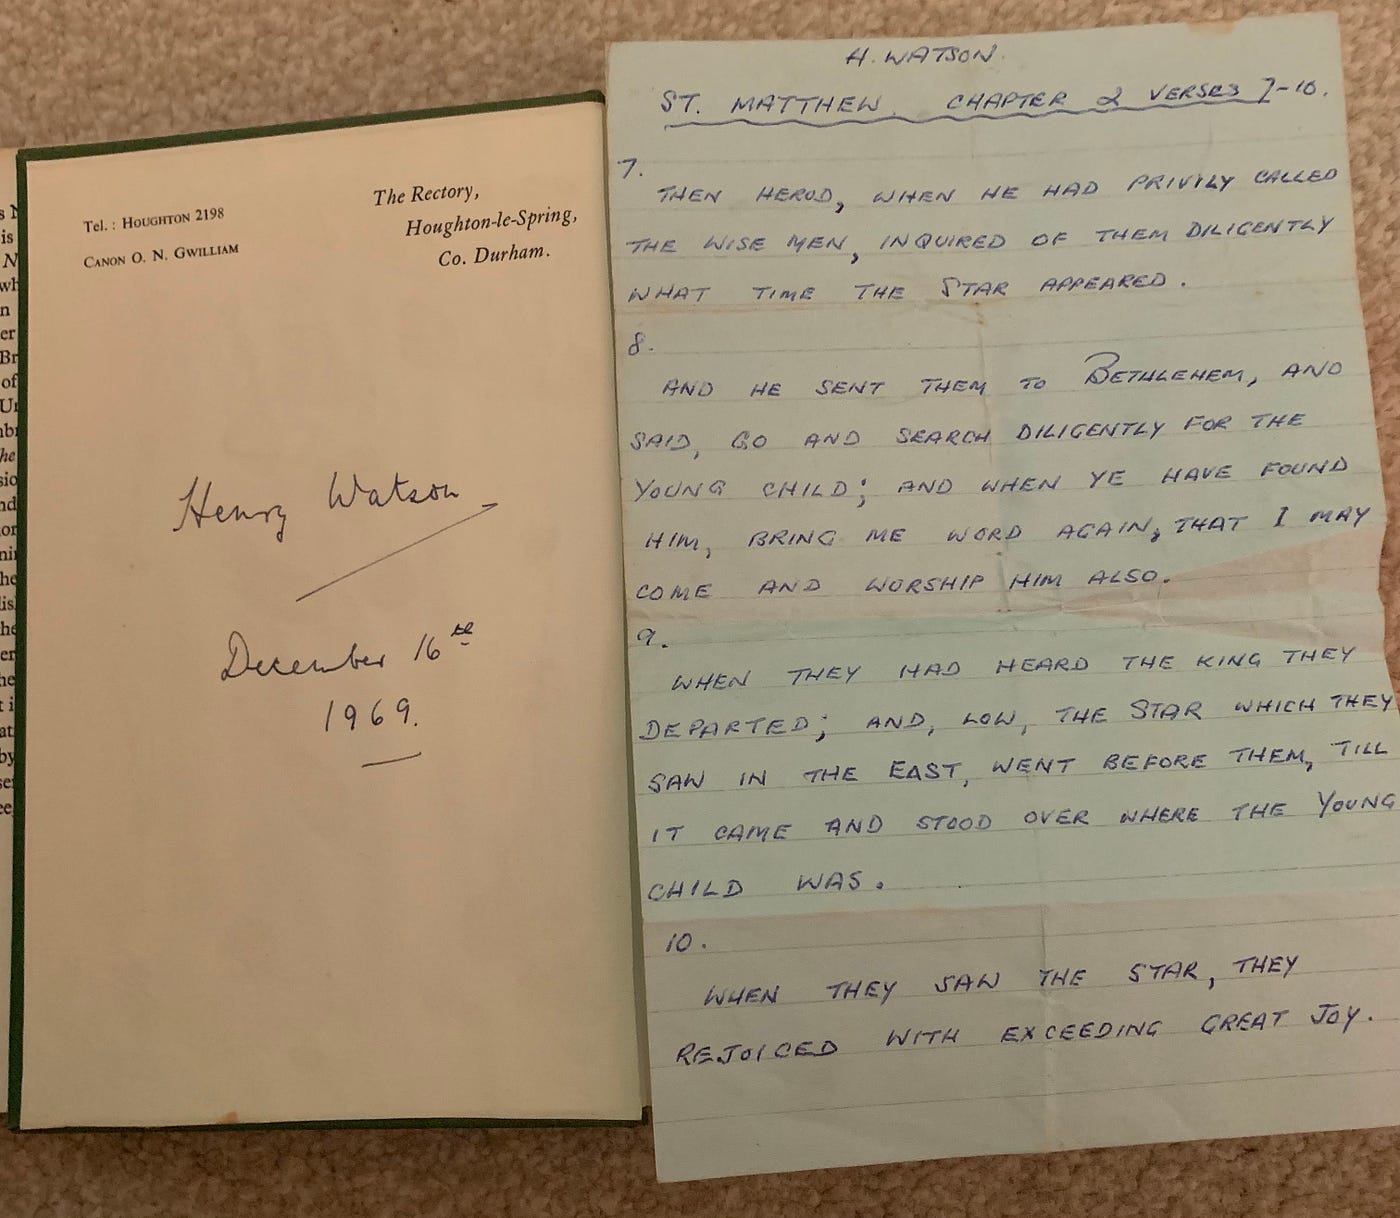 Tel.: Houghton 2198
Canon O. N. Gwilliam
The Rectory,
Houghton-le-Spring,
Co. Durham.
Henry Watson
December 16th
1969.
H. WATSON.
ST. MATTHEW. CHAPTER 2 VERSES 7-10.
7.
THEN HEROD, WHEN HE HAD PRIVILY CALLED
THE WISE MEN, INQUIRED OF THEM DILIGENTLY
WHAT TIME THE STAR APPEARED.
8.
AND HE SENT THEM TO BETHLEHEM, AND
SAID, GO AND SEARCH DILIGENTLY FOR THE
YOUNG CHILD; AND WHEN YE HAVE FOUND
HIM, BRING ME WORD AGAIN, THAT I MAY
COME AND WORSHIP HIM ALSO.
9.
WHEN THEY HAD HEARD THE KING THEY
DEPARTED; AND, LOW, THE STAR WHICH THEY
SAW IN THE EAST, WENT BEFORE THEM, TILL
IT CAME AND STOOD OVER WHERE THE YOUNG
CHILD WAS.
10.
WHEN THEY SAW THE STAR, THEY
REJOICED WITH EXCEEDING GREAT JOY.